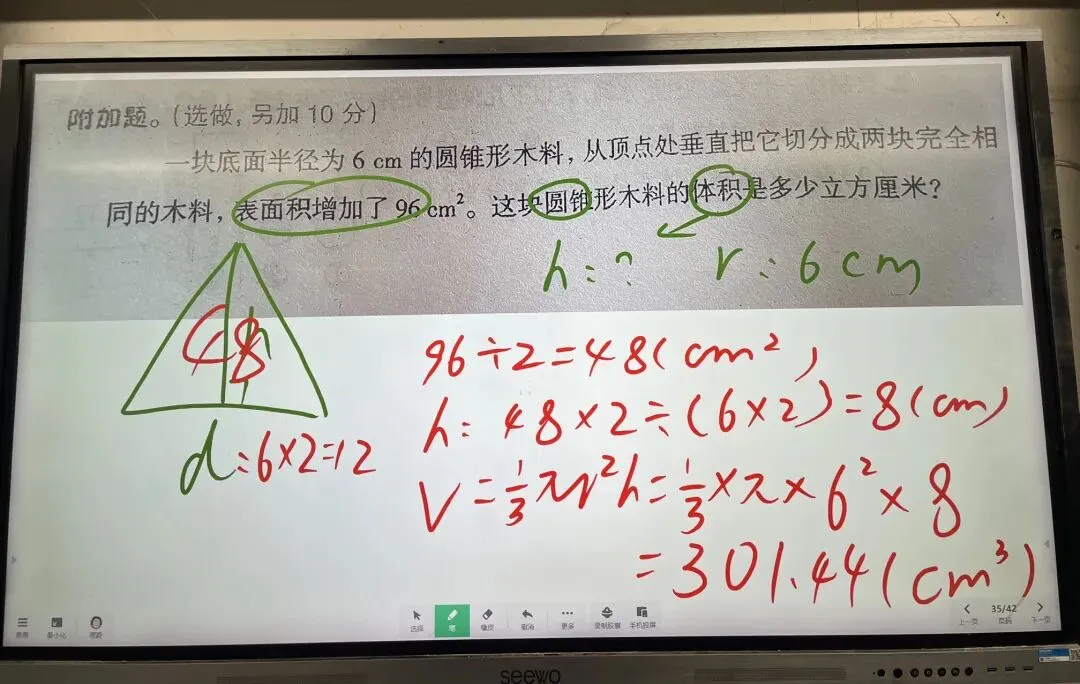 附加题。(选做,另加 10 分)
一块底面半径为 6 cm 的圆锥形木料,从顶点处垂直把它切分成两块完全相
同的木料,表面积增加了 96 cm²。这块圆锥形木料的体积是多少立方厘米?
h:? r:6cm
48
h
d:6×2=12
96÷2=48(cm²)
h: 48×2÷(6×2)=8(cm)
V=1/3πr²h=1/3×π×6²×8
=301.44(cm³)
最小化
选择
笔
橡皮
撤消
更多
录制胶囊
手机投屏
上一页
35/42
页码
下一页
seewo